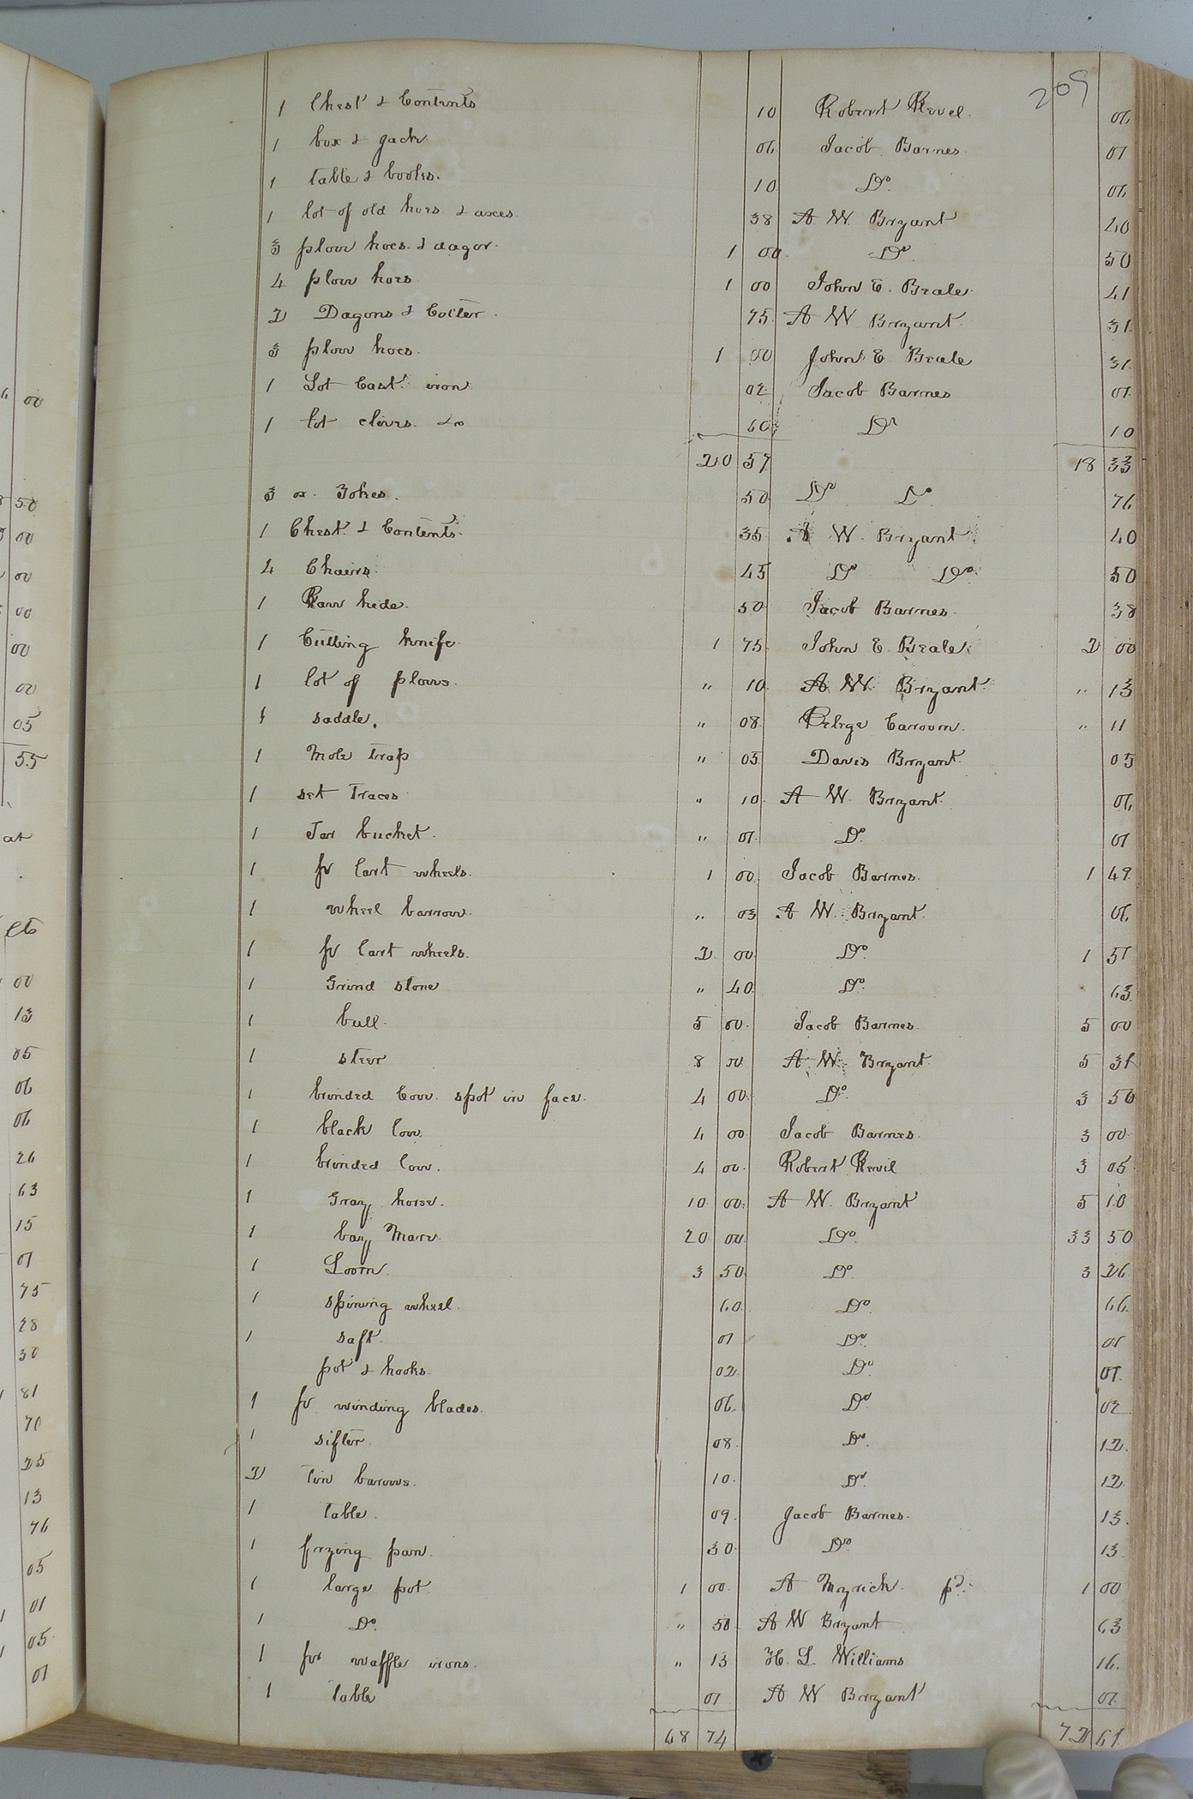 209
1 Chest & Contents 10 Robert Revel 06
1 box & jack 06 Jacob Barnes 01
1 table & books. 10 Do. 06
1 lot of old hoes & axes 38 A W Bryant 40
3 plow hoes & dagor 1 00 Do 50
4 plow hoes 1 00 John E. Beale 41
2 Dagons & Colter 75 A W Bryant 31
3 plow hoes 1 00 John E Beale 31
1 Lot Cast iron 02 Jacob Barnes 01
1 lot clives &c 60 Do 10
20 57 18 33
3 ox Yokes. 50 Do Do 76
1 Chest & Contents 35 A W. Bryant 40
4 Chairs 45 Do Do 50
1 Raw hide. 50 Jacob Barnes 38
1 Cutting knife 1 75 John E. Beale 2 00
1 lot of plows " 10 A W Bryant " 13
1 saddle. " 08 " 11
1 Mole trap " 05 Davis Bryant 05
1 set Traces " 10 A W Bryant 06
1 Tar bucket " 01 Do 01
1 pr Cart wheels. 1 00 Jacob Barnes. 1 49
1 wheel barrow " 03 A W. Bryant 06
1 pr Cart wheels. 2 00 Do 1 51
1 Grind stone " 40 Do 63
1 bull 5 00 Jacob Barnes 5 00
1 steer 8 00 A W. Bryant 5 31
1 brinded Cow spot in face 4 00 Do 3 50
1 black Cow 4 00 Jacob Barnes 3 00
1 brinded Cow. 4 00 Robert Revil 3 05
1 Gray horse. 10 00 A W. Bryant 5 10
1 bay Mare 20 00 Do. 33 50
1 Loom 3 50 Do 3 26
1 spining wheel 60 Do 66
1 saft 01 Do 01
pot & hooks. 02 Do 01
1 pr winding blades. 06 Do 02
1 sifter 08 Do 12
2 tin barows. 10 Do 12
1 table 09 Jacob Barnes. 13
1 frying pan. 30 Do 13
1 large pot 1 00 A Myrick pd. 1 00
1 Do. " 50 A W Bryant 63
1 pr waffle irons. " 13 H. L Williams 16
1 table 01 A W Bryant 01
48 74 72 61
00
50
00
00
00
00
00
05
55
at
00
13
05
06
06
26
63
15
01
75
28
30
81
70
25
13
76
05
01
05
01